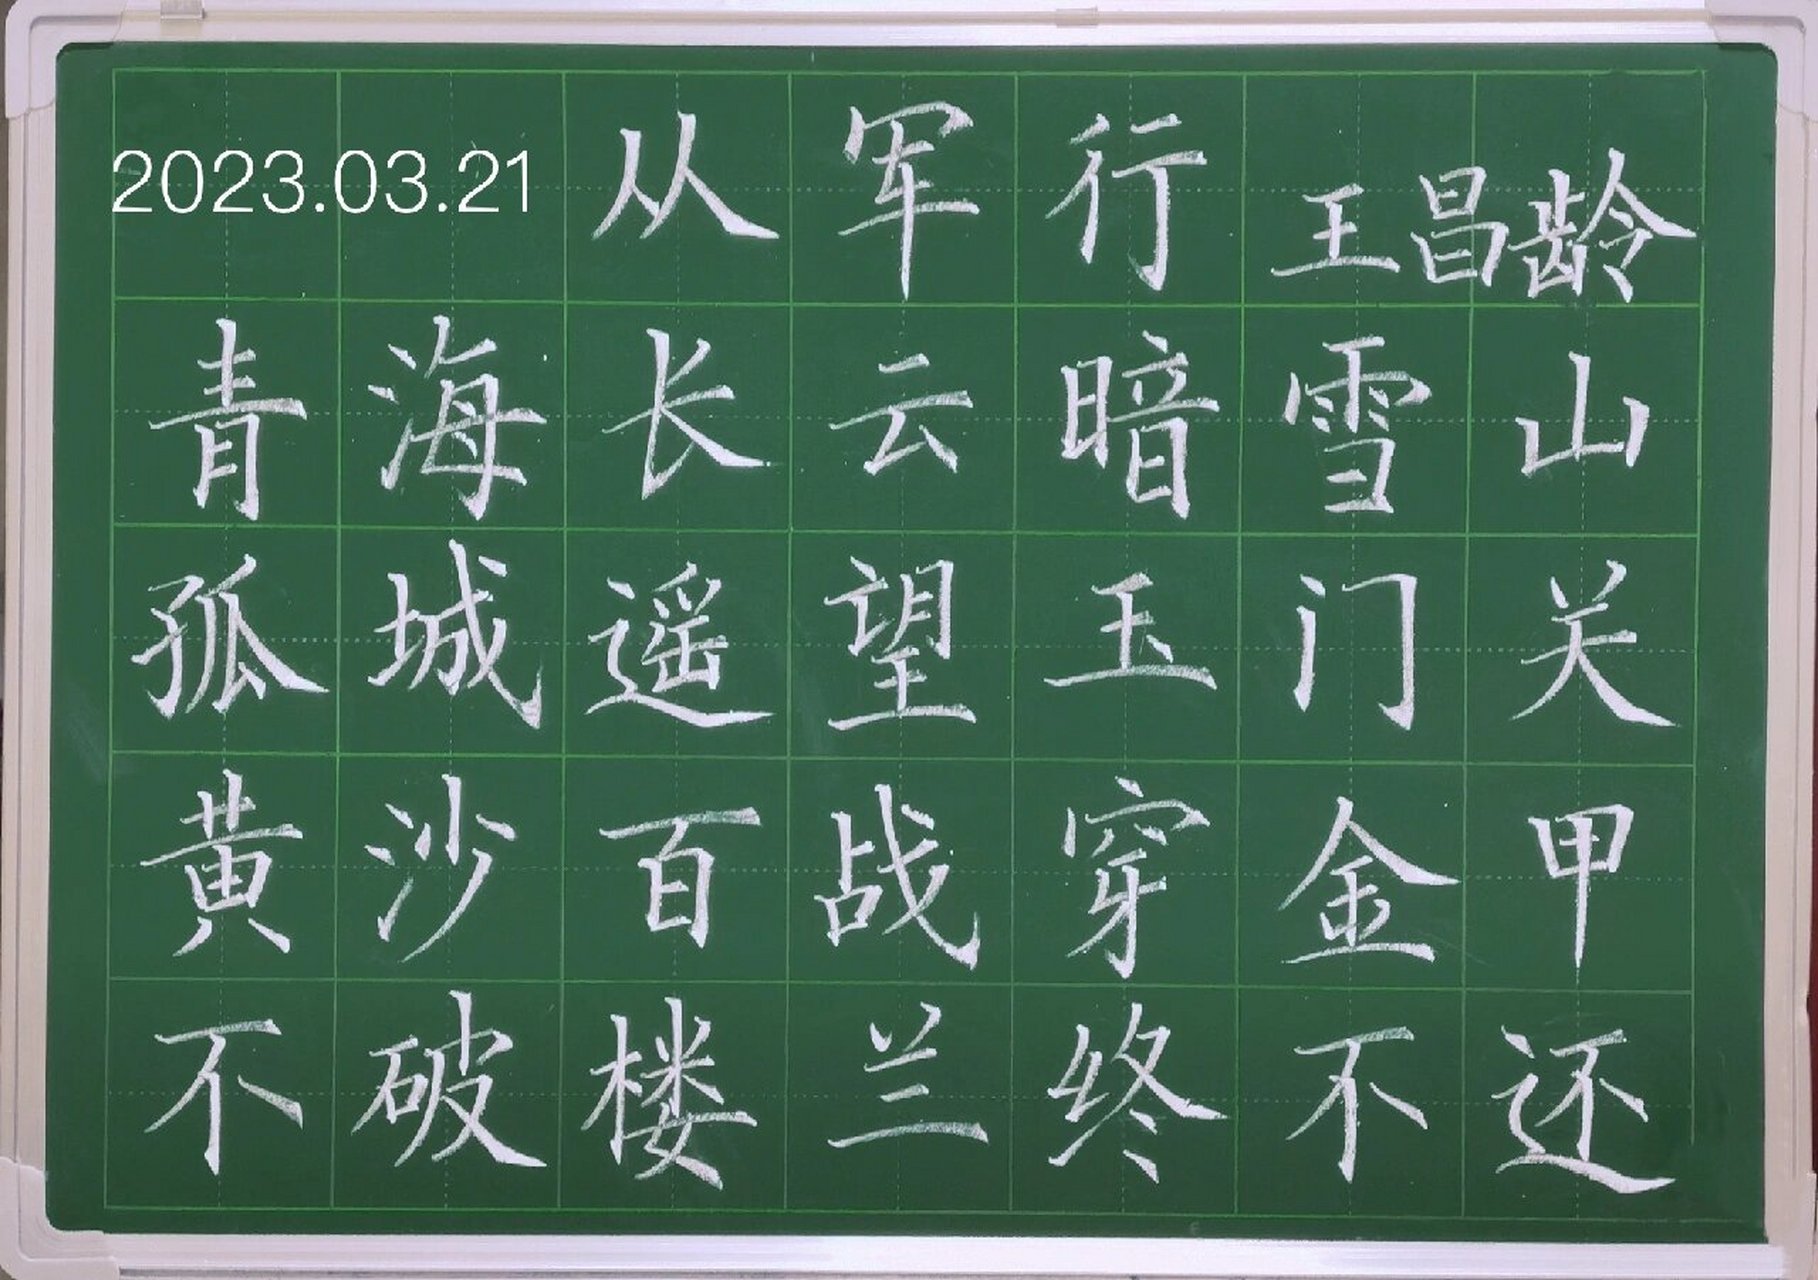 2023.03.21 从军行 王昌龄
青海长云暗雪山
孤城遥望玉门关
黄沙百战穿金甲
不破楼兰终不还